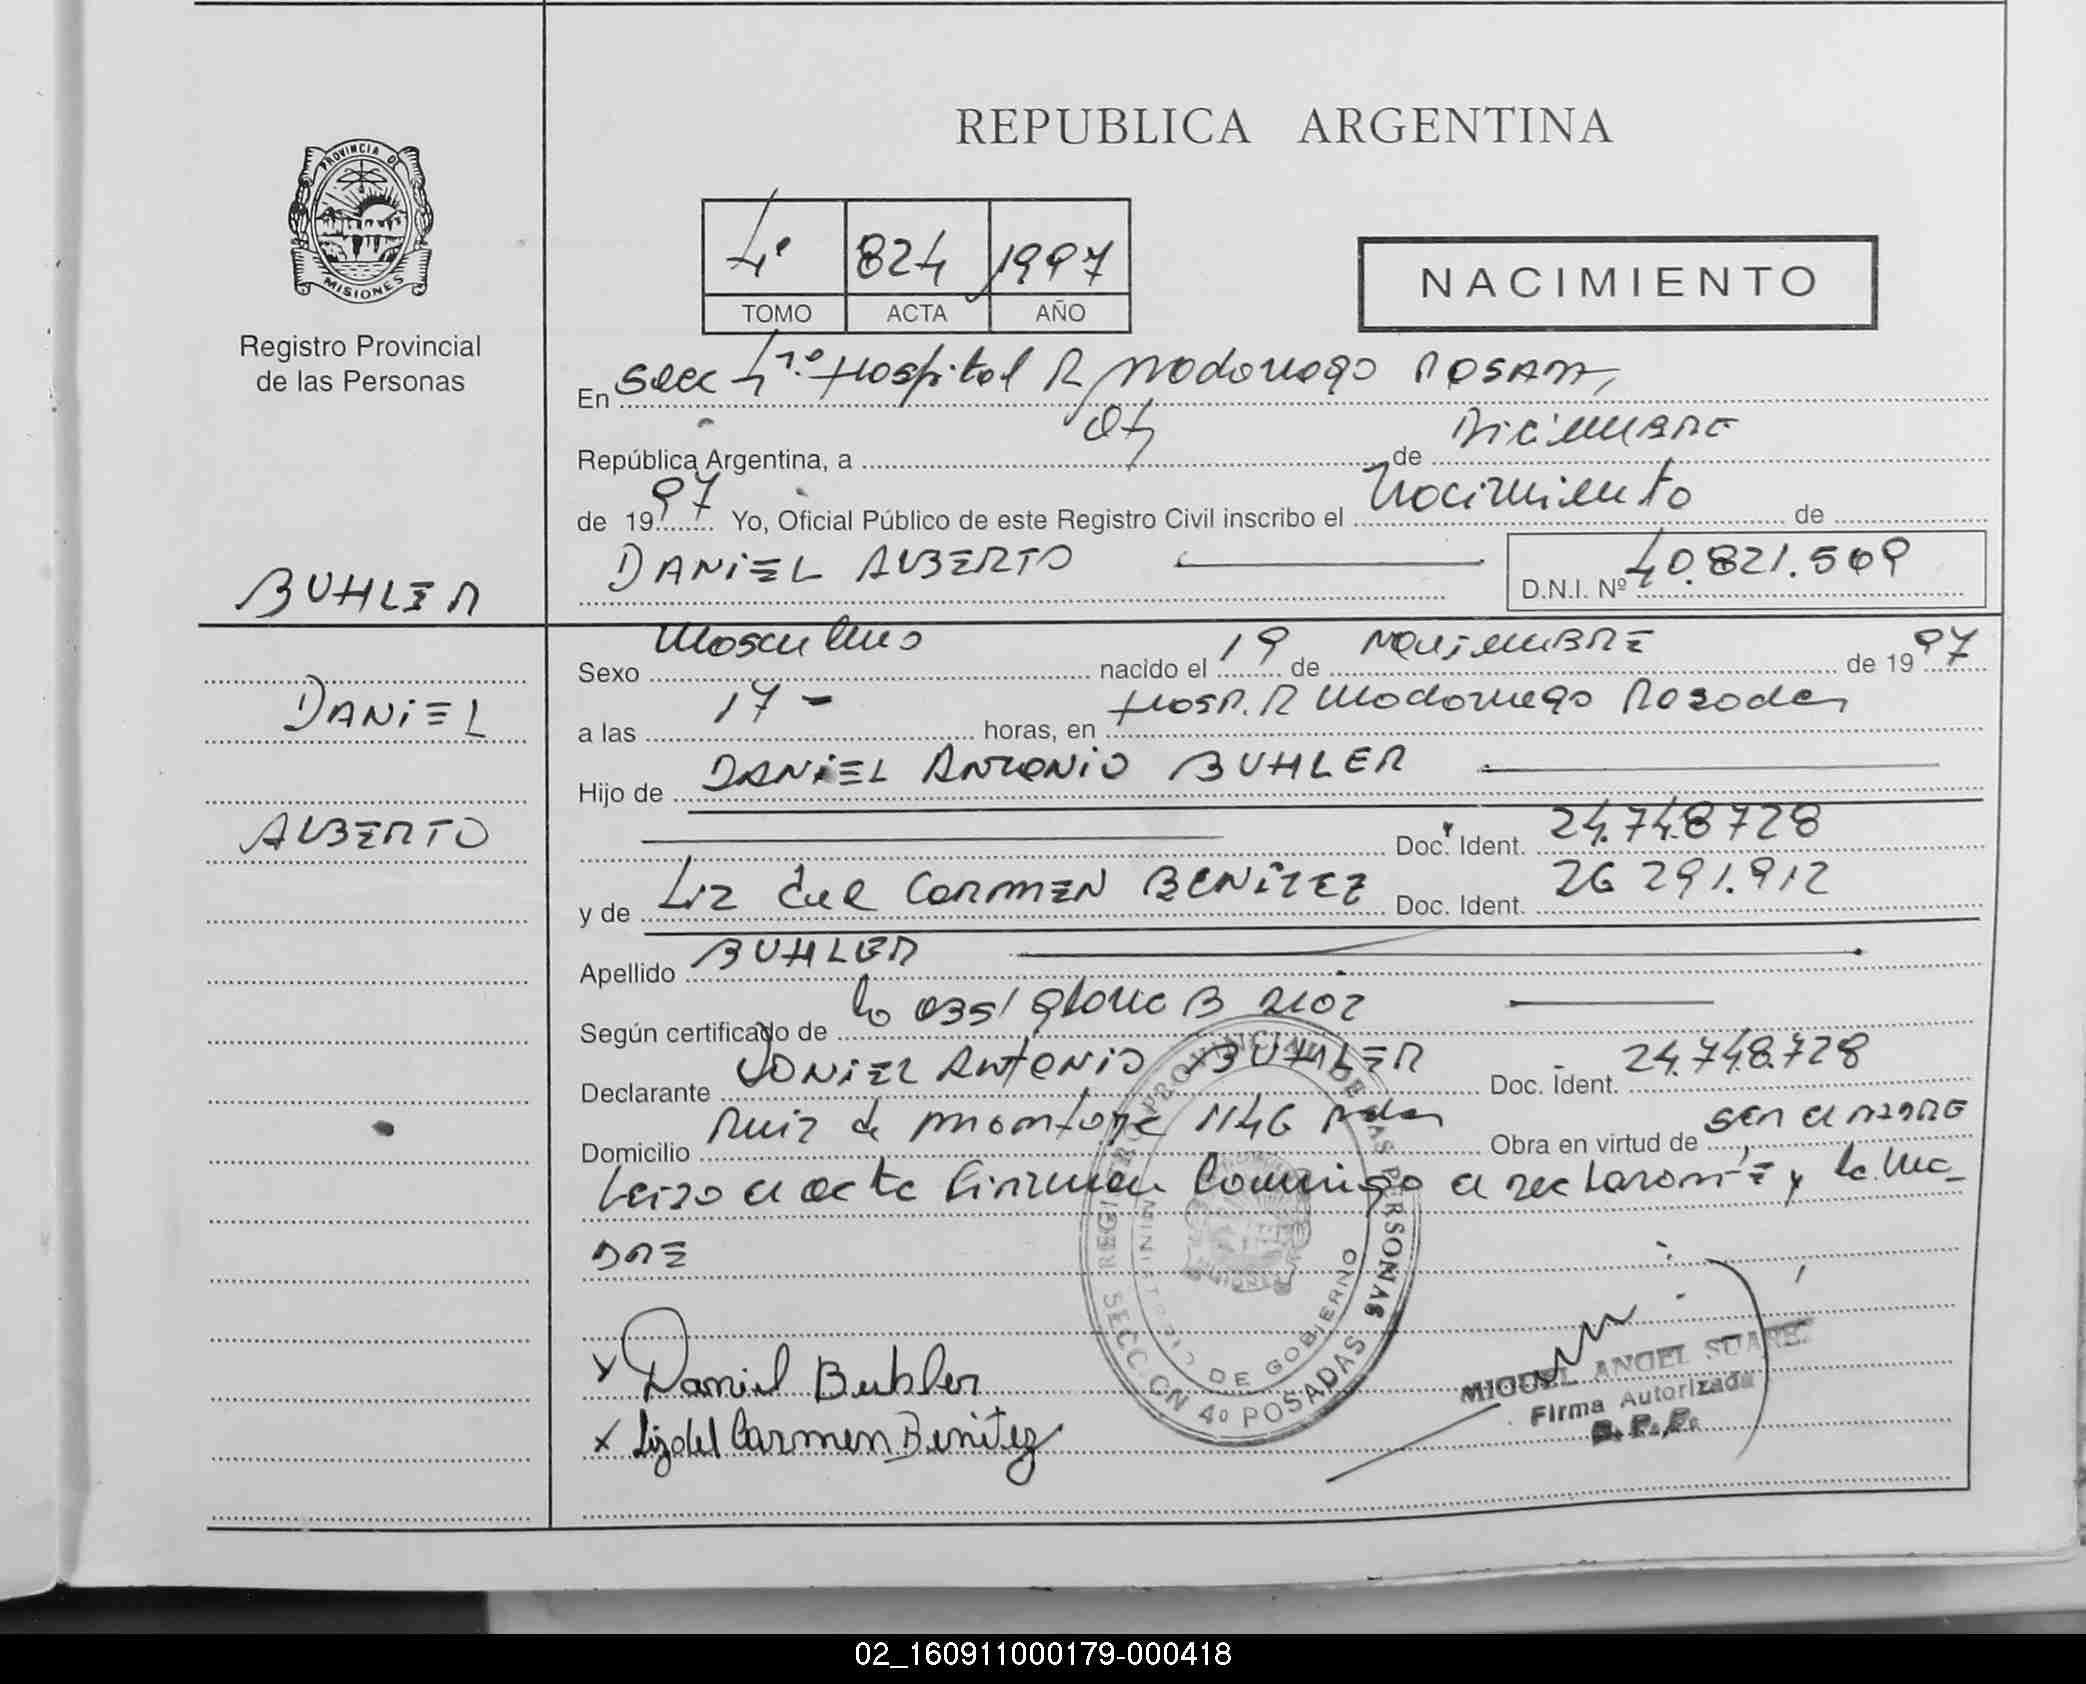 REPUBLICA ARGENTINA
PROVINCIA DE
MISIONES
Registro Provincial
de las Personas
4º 824 1997
TOMO ACTA AÑO
NACIMIENTO
En Secc 4º. Hospital R Madariaga
República Argentina, a 04 de Diciembre
de 1997 Yo, Oficial Público de este Registro Civil inscribo el Nacimiento de
DANIEL ALBERTO D.N.I. Nº 40.821.569
BUHLER
DANIEL
ALBERTO
Sexo Masculino nacido el 19 de Noviembre de 1997
a las 17 - horas, en Hosp. R Madariaga Posadas
Hijo de DANIEL ANTONIO BUHLER
Doc. Ident. 24.748728
y de Liz del Carmen BENITEZ Doc. Ident. 26 291.912
Apellido BUHLER
Según certificado de la
Declarante DANIEL ANTONIO BUHLER Doc. Ident. 24.748.728
Domicilio Ruiz de Montoya 1146 Obra en virtud de ser el padre
Leida el acta firman conmigo el declarante y la Ma-
DRE
REGISTRO PROVINCIAL DE LAS PERSONAS
MINISTERIO DE GOBIERNO
SECCION 4º POSADAS
Daniel Buhler
Liz del Carmen Benitez
MIGUEL ANGEL SUAREZ
Firma Autorizada
02_160911000179-000418